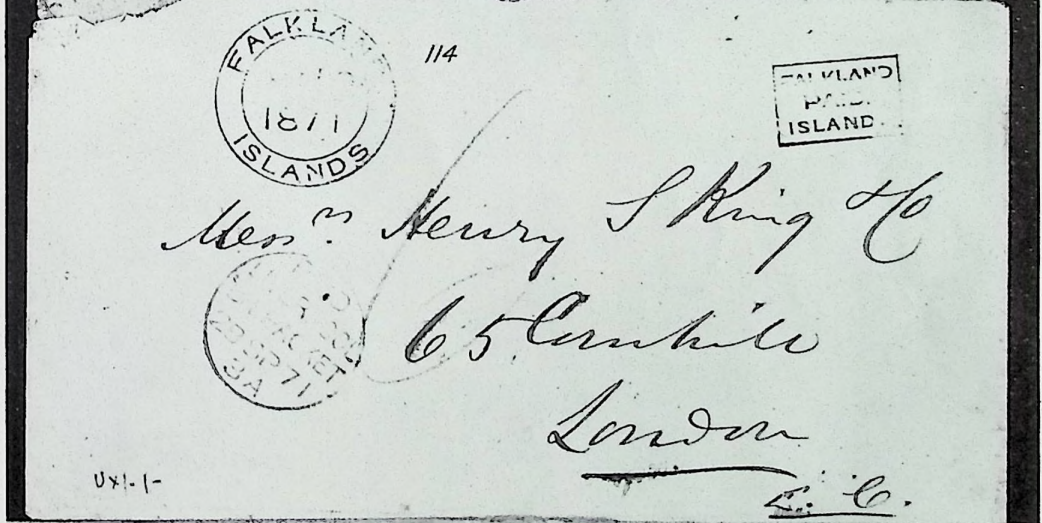 FALKLAND
ISLANDS
1871
114
FALKLAND
PAID.
ISLAND
Messrs. Henry S King & Co
65 Cornhill
London
E. C.
PACKET
29 SP 71
3A